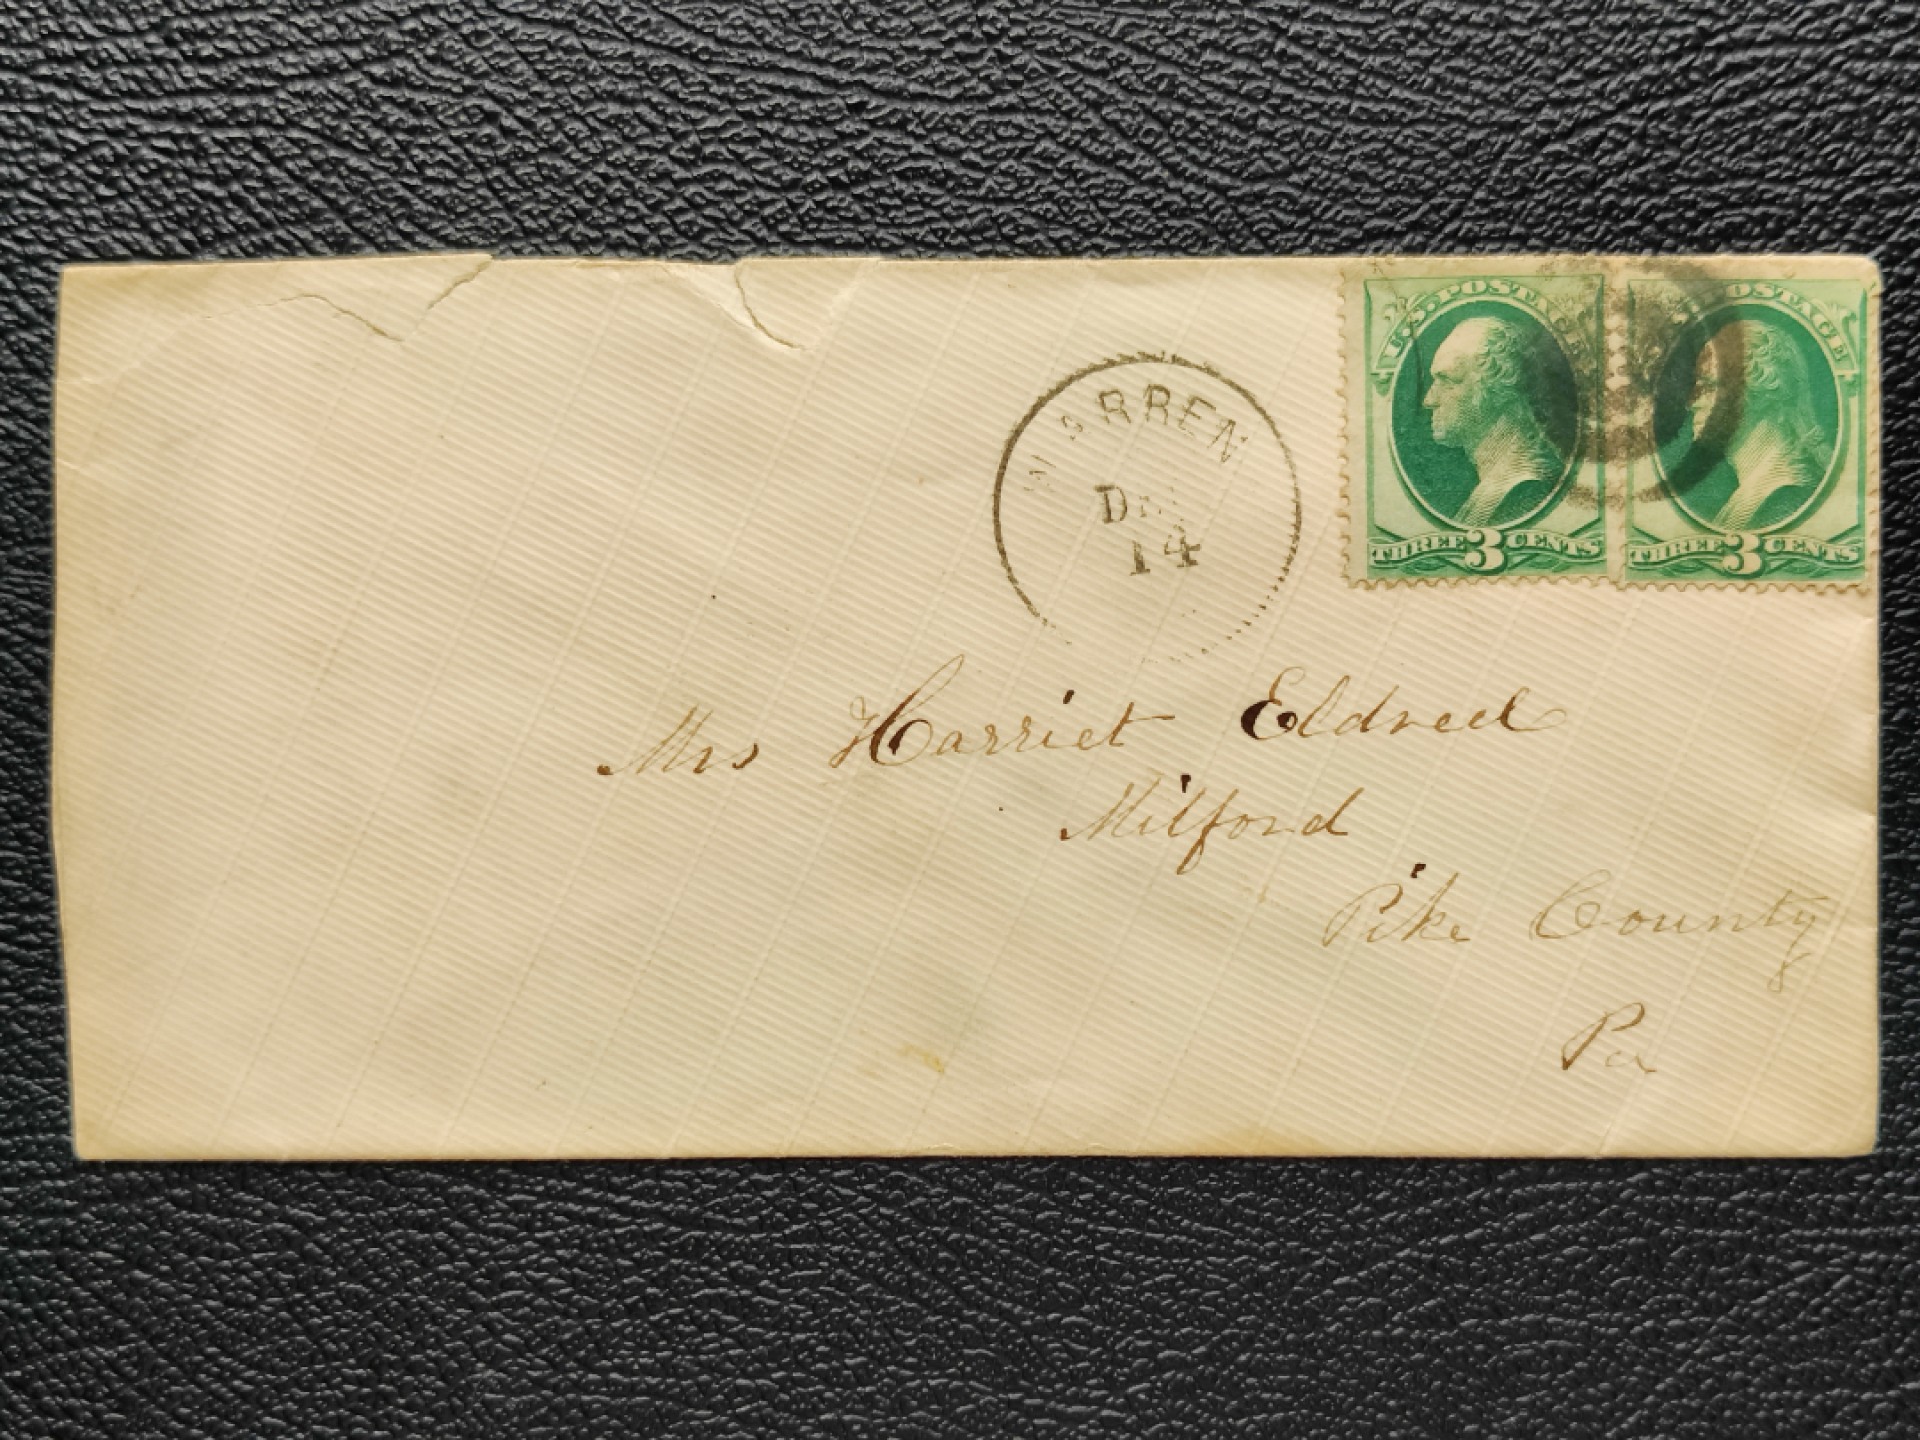 U.S. POSTAGE
THREE 3 CENTS
POSTAGE
THREE 3 CENTS
WARREN
14
Mrs Harriet Eldred
Milford
Pike County
Pa